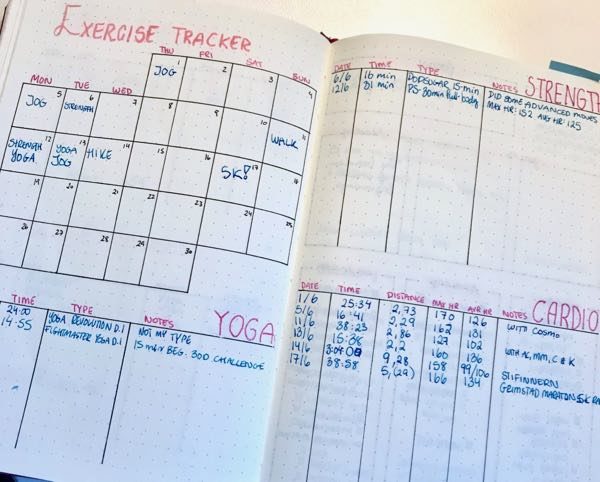 EXERCISE TRACKER
THU FRI SAT SUN
MON TUE WED
1 2 3 4
JOG
5 6 7 8 9 10 11
JOG STRENGTH WALK
12 13 14 15 16 17 18
STRENGTH YOGA HIKE 5K!
YOGA JOG
19 20 21 22 23 24 25
26 27 28 29 30
YOGA
TIME TYPE NOTES
24:00 YOGA REVOLUTION D.1 NOT MY TYPE
14:55 FIGHTMASTER YOGA D.1 15 min BEG. 30D CHALLENGE
STRENGTH
DATE TIME TYPE NOTES
6/6 16 min POPSUGAR 15-min DID SOME ADVANCED MOVES
12/6 31 min PS-30min Full-body MAX HR: 152 AVG HR: 125
CARDIO
DATE TIME DISTANCE MAX HR AVR HR NOTES
1/6 25:34 2,73 170 126 WITH COSMO
5/6 16:41 2,29 162 131
11/6 38:23 2,86 127 102 WITH AC, MM, C & K
13/6 15:38 2,2 160 136
14/6 3:07:00 9,28 158 99/106 STIFINNERN
17/6 38:58 5,(29) 166 134 GRIMSTAD MARATON 5K